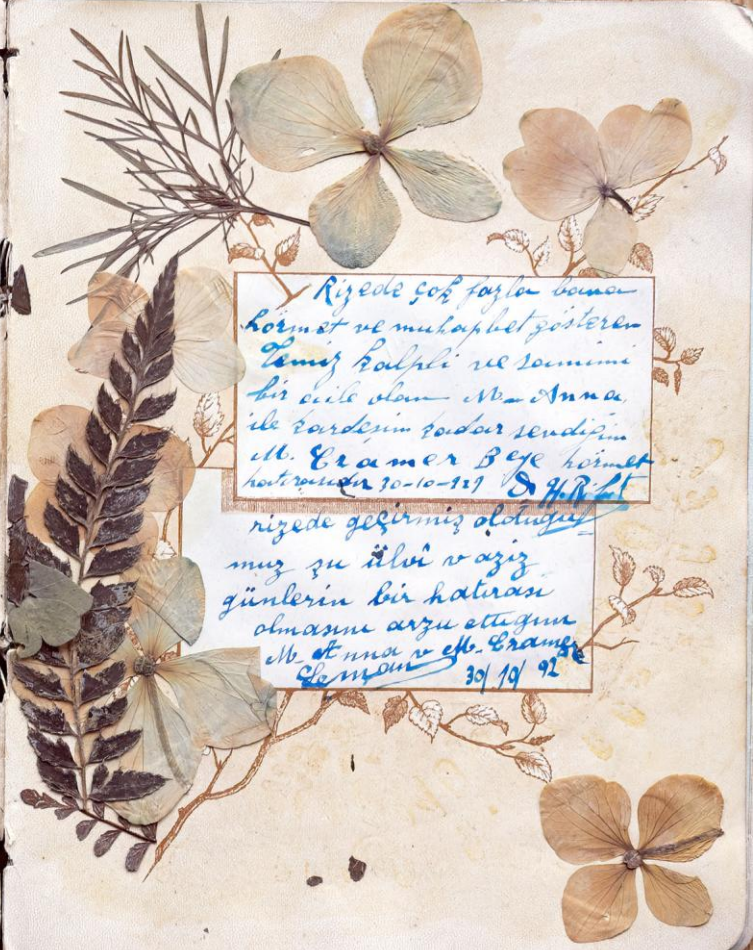 Rizede çok fazla bana
hörmet ve muhapbet gösteren
Temiz kalpli ve samimi
bir aile olan M- Anna
ile kardeşim kadar sevdiğim
M. Cramer Beye hörmet
hatırasıdır 30-10-929
rizede geçirmiş olduğu
muz şu ülvî v aziz
günlerin bir hatırası
olmasını arzu ettiğim
M. Anna v M. Cramer
Leman 30/10/92